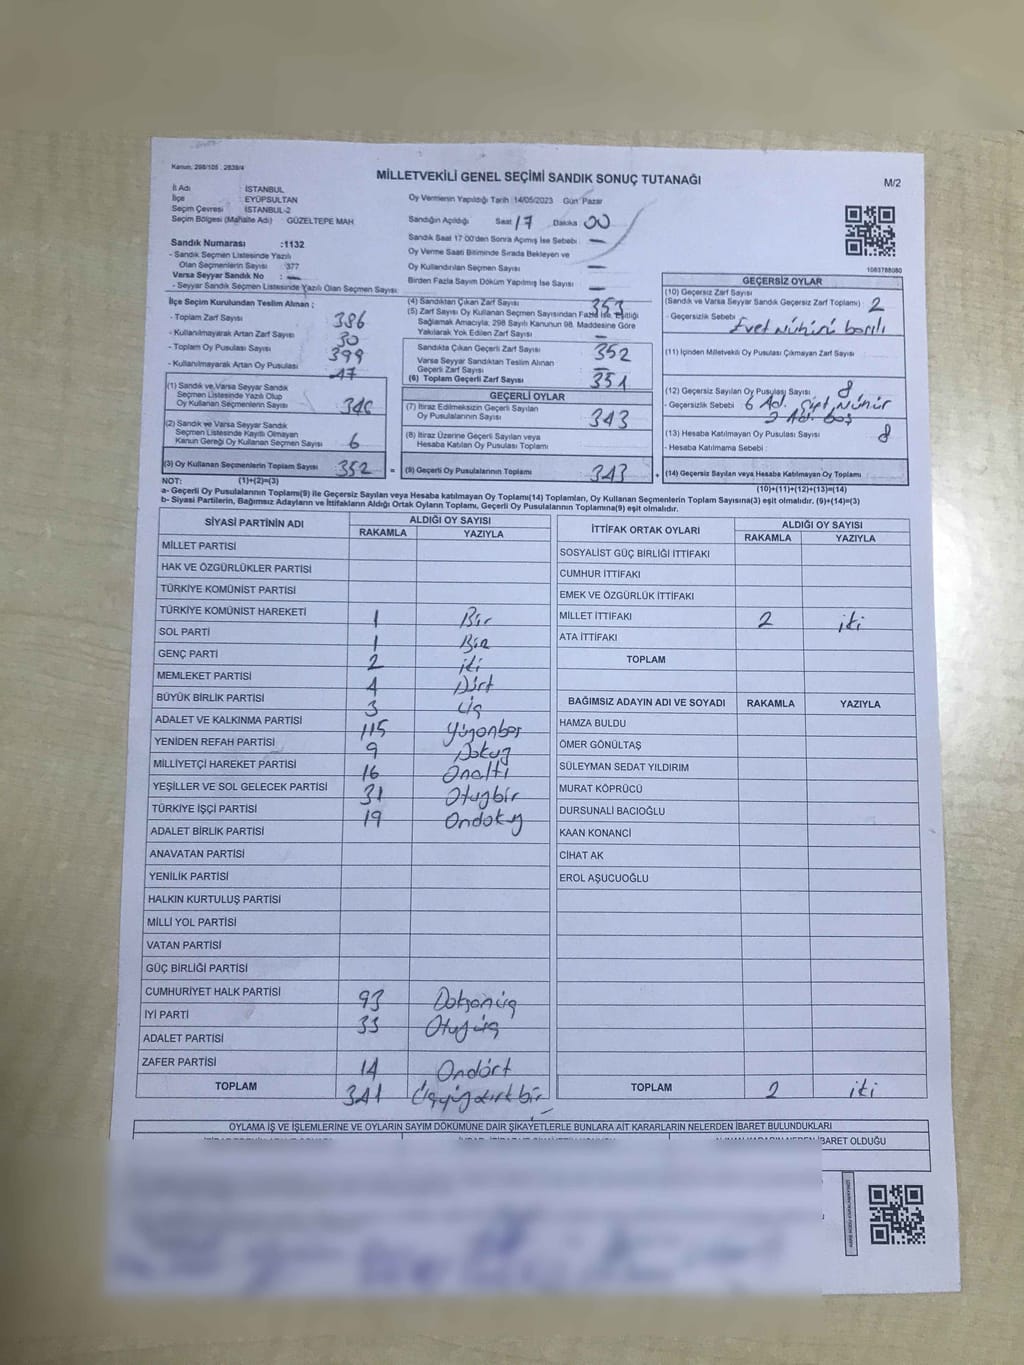 Kanun: 298/105 , 2839/4
MİLLETVEKİLİ GENEL SEÇİMİ SANDIK SONUÇ TUTANAĞI
M/2
İl Adı : İSTANBUL
İlçe : EYÜPSULTAN
Seçim Çevresi : İSTANBUL-2
Seçim Bölgesi (Mahalle Adı) GÜZELTEPE MAH
Oy Vermenin Yapıldığı Tarih 14/05/2023 Gün Pazar
Sandığın Açıldığı Saat 17 Dakika 00
Sandık Saat 17 00'den Sonra Açımış İse Sebebi —
Oy Verme Saati Bitiminde Sırada Bekleyen ve
Oy Kullandırılan Seçmen Sayısı —
Birden Fazla Sayım Döküm Yapılmış İse Sayısı —
1083788080
Sandık Numarası :1132
- Sandık Seçmen Listesinde Yazılı
Olan Seçmenlerin Sayısı :377
Varsa Seyyar Sandık No : —
- Seyyar Sandık Seçmen Listesinde Yazılı Olan Seçmen Sayısı:
İlçe Seçim Kurulundan Teslim Alınan ;
- Toplam Zarf Sayısı 386
- Kullanılmayarak Artan Zarf Sayısı 30
- Toplam Oy Pusulası Sayısı 399
- Kullanılmayarak Artan Oy Pusulası 47
(1) Sandık ve Varsa Seyyar Sandık
Seçmen Listesinde Yazılı Olup
Oy Kullanan Seçmenlerin Sayısı 346
(2) Sandık ve Varsa Seyyar Sandık
Seçmen Listesinde Kayıtlı Olmayan
Kanun Gereği Oy Kullanan Seçmen Sayısı 6
(3) Oy Kullanan Seçmenlerin Toplam Sayısı 352 =
(4) Sandıktan Çıkan Zarf Sayısı 353
(5) Zarf Sayısı Oy Kullanan Seçmen Sayısından Fazla İse, Eşitliği
Sağlamak Amacıyla, 298 Sayılı Kanunun 98. Maddesine Göre
Yakılarak Yok Edilen Zarf Sayısı —
Sandıkta Çıkan Geçerli Zarf Sayısı 352
Varsa Seyyar Sandıktan Teslim Alınan
Geçerli Zarf Sayısı —
(6) Toplam Geçerli Zarf Sayısı 351
GEÇERLİ OYLAR
(7) İtiraz Edilmeksizin Geçerli Sayılan
Oy Pusulalarının Sayısı 343
(8) İtiraz Üzerine Geçerli Sayılan veya
Hesaba Katılan Oy Pusulası Toplamı
(9) Geçerli Oy Pusulalarının Toplamı 343 +
GEÇERSİZ OYLAR
(10) Geçersiz Zarf Sayısı
(Sandık ve Varsa Seyyar Sandık Geçersiz Zarf Toplamı) 2
- Geçersizlik Sebebi : Evet Mührü basılı
(11) İçinden Milletvekili Oy Pusulası Çıkmayan Zarf Sayısı
(12) Geçersiz Sayılan Oy Pusulası Sayısı 8
- Geçersizlik Sebebi : 6 Ad. Çift Mühür
2 Ad. boş
(13) Hesaba Katılmayan Oy Pusulası Sayısı 8
- Hesaba Katılmama Sebebi :
(14) Geçersiz Sayılan veya Hesaba Katılmayan Oy Toplamı
NOT: (1)+(2)=(3)
(10)+(11)+(12)+(13)=(14)
a- Geçerli Oy Pusulalarının Toplamı(9) ile Geçersiz Sayılan veya Hesaba katılmayan Oy Toplamı(14) Toplamları, Oy Kullanan Seçmenlerin Toplam Sayısına(3) eşit olmalıdır. (9)+(14)=(3)
b- Siyasi Partilerin, Bağımsız Adayların ve İttifakların Aldığı Ortak Oyların Toplamı, Geçerli Oy Pusulalarının Toplamına(9) eşit olmalıdır.
SİYASİ PARTİNİN ADI ALDIĞI OY SAYISI
RAKAMLA YAZIYLA
MİLLET PARTİSİ
HAK VE ÖZGÜRLÜKLER PARTİSİ
TÜRKİYE KOMÜNİST PARTİSİ
TÜRKİYE KOMÜNİST HAREKETİ 1 Bir
SOL PARTİ 1 Bir
GENÇ PARTİ 2 iki
MEMLEKET PARTİSİ 4 Dört
BÜYÜK BİRLİK PARTİSİ 3 Üç
ADALET VE KALKINMA PARTİSİ 115 Yüzonbeş
YENİDEN REFAH PARTİSİ 9 Dokuz
MİLLİYETÇİ HAREKET PARTİSİ 16 Onaltı
YEŞİLLER VE SOL GELECEK PARTİSİ 31 Otuzbir
TÜRKİYE İŞÇİ PARTİSİ 19 Ondokuz
ADALET BİRLİK PARTİSİ
ANAVATAN PARTİSİ
YENİLİK PARTİSİ
HALKIN KURTULUŞ PARTİSİ
MİLLİ YOL PARTİSİ
VATAN PARTİSİ
GÜÇ BİRLİĞİ PARTİSİ
CUMHURİYET HALK PARTİSİ 93 Doksanüç
İYİ PARTİ 33 Otuzüç
ADALET PARTİSİ
ZAFER PARTİSİ 14 Ondört
TOPLAM 341 Üçyüzkırkbir
İTTİFAK ORTAK OYLARI ALDIĞI OY SAYISI
RAKAMLA YAZIYLA
SOSYALİST GÜÇ BİRLİĞİ İTTİFAKI
CUMHUR İTTİFAKI
EMEK VE ÖZGÜRLÜK İTTİFAKI
MİLLET İTTİFAKI 2 iki
ATA İTTİFAKI
TOPLAM
BAĞIMSIZ ADAYIN ADI VE SOYADI RAKAMLA YAZIYLA
HAMZA BULDU
ÖMER GÖNÜLTAŞ
SÜLEYMAN SEDAT YILDIRIM
MURAT KÖPRÜCÜ
DURSUNALİ BACIOĞLU
KAAN KONANCİ
CİHAT AK
EROL AŞUCUOĞLU
TOPLAM 2 iki
OYLAMA İŞ VE İŞLEMLERİNE VE OYLARIN SAYIM DÖKÜMÜNE DAİR ŞİKAYETLERLE BUNLARA AİT KARARLARIN NELERDEN İBARET BULUNDUKLARI
İBARET OLDUĞU